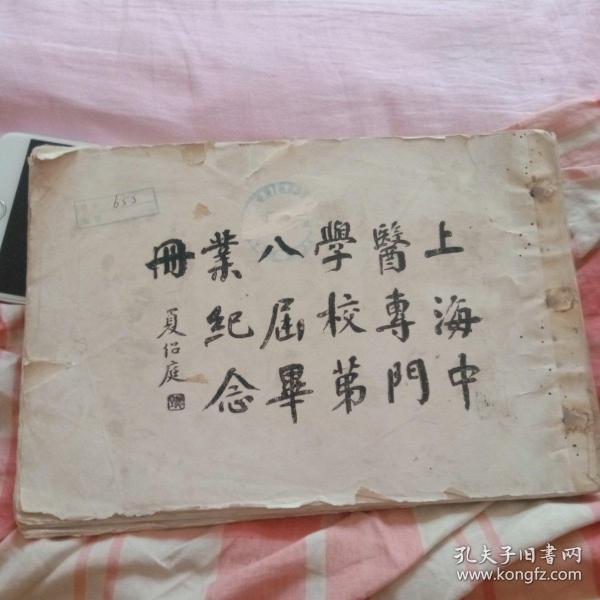 上海中
醫專門
學校第
八屆畢
業紀念
冊
夏绍庭
653
孔夫子旧書网
www.kongfz.com